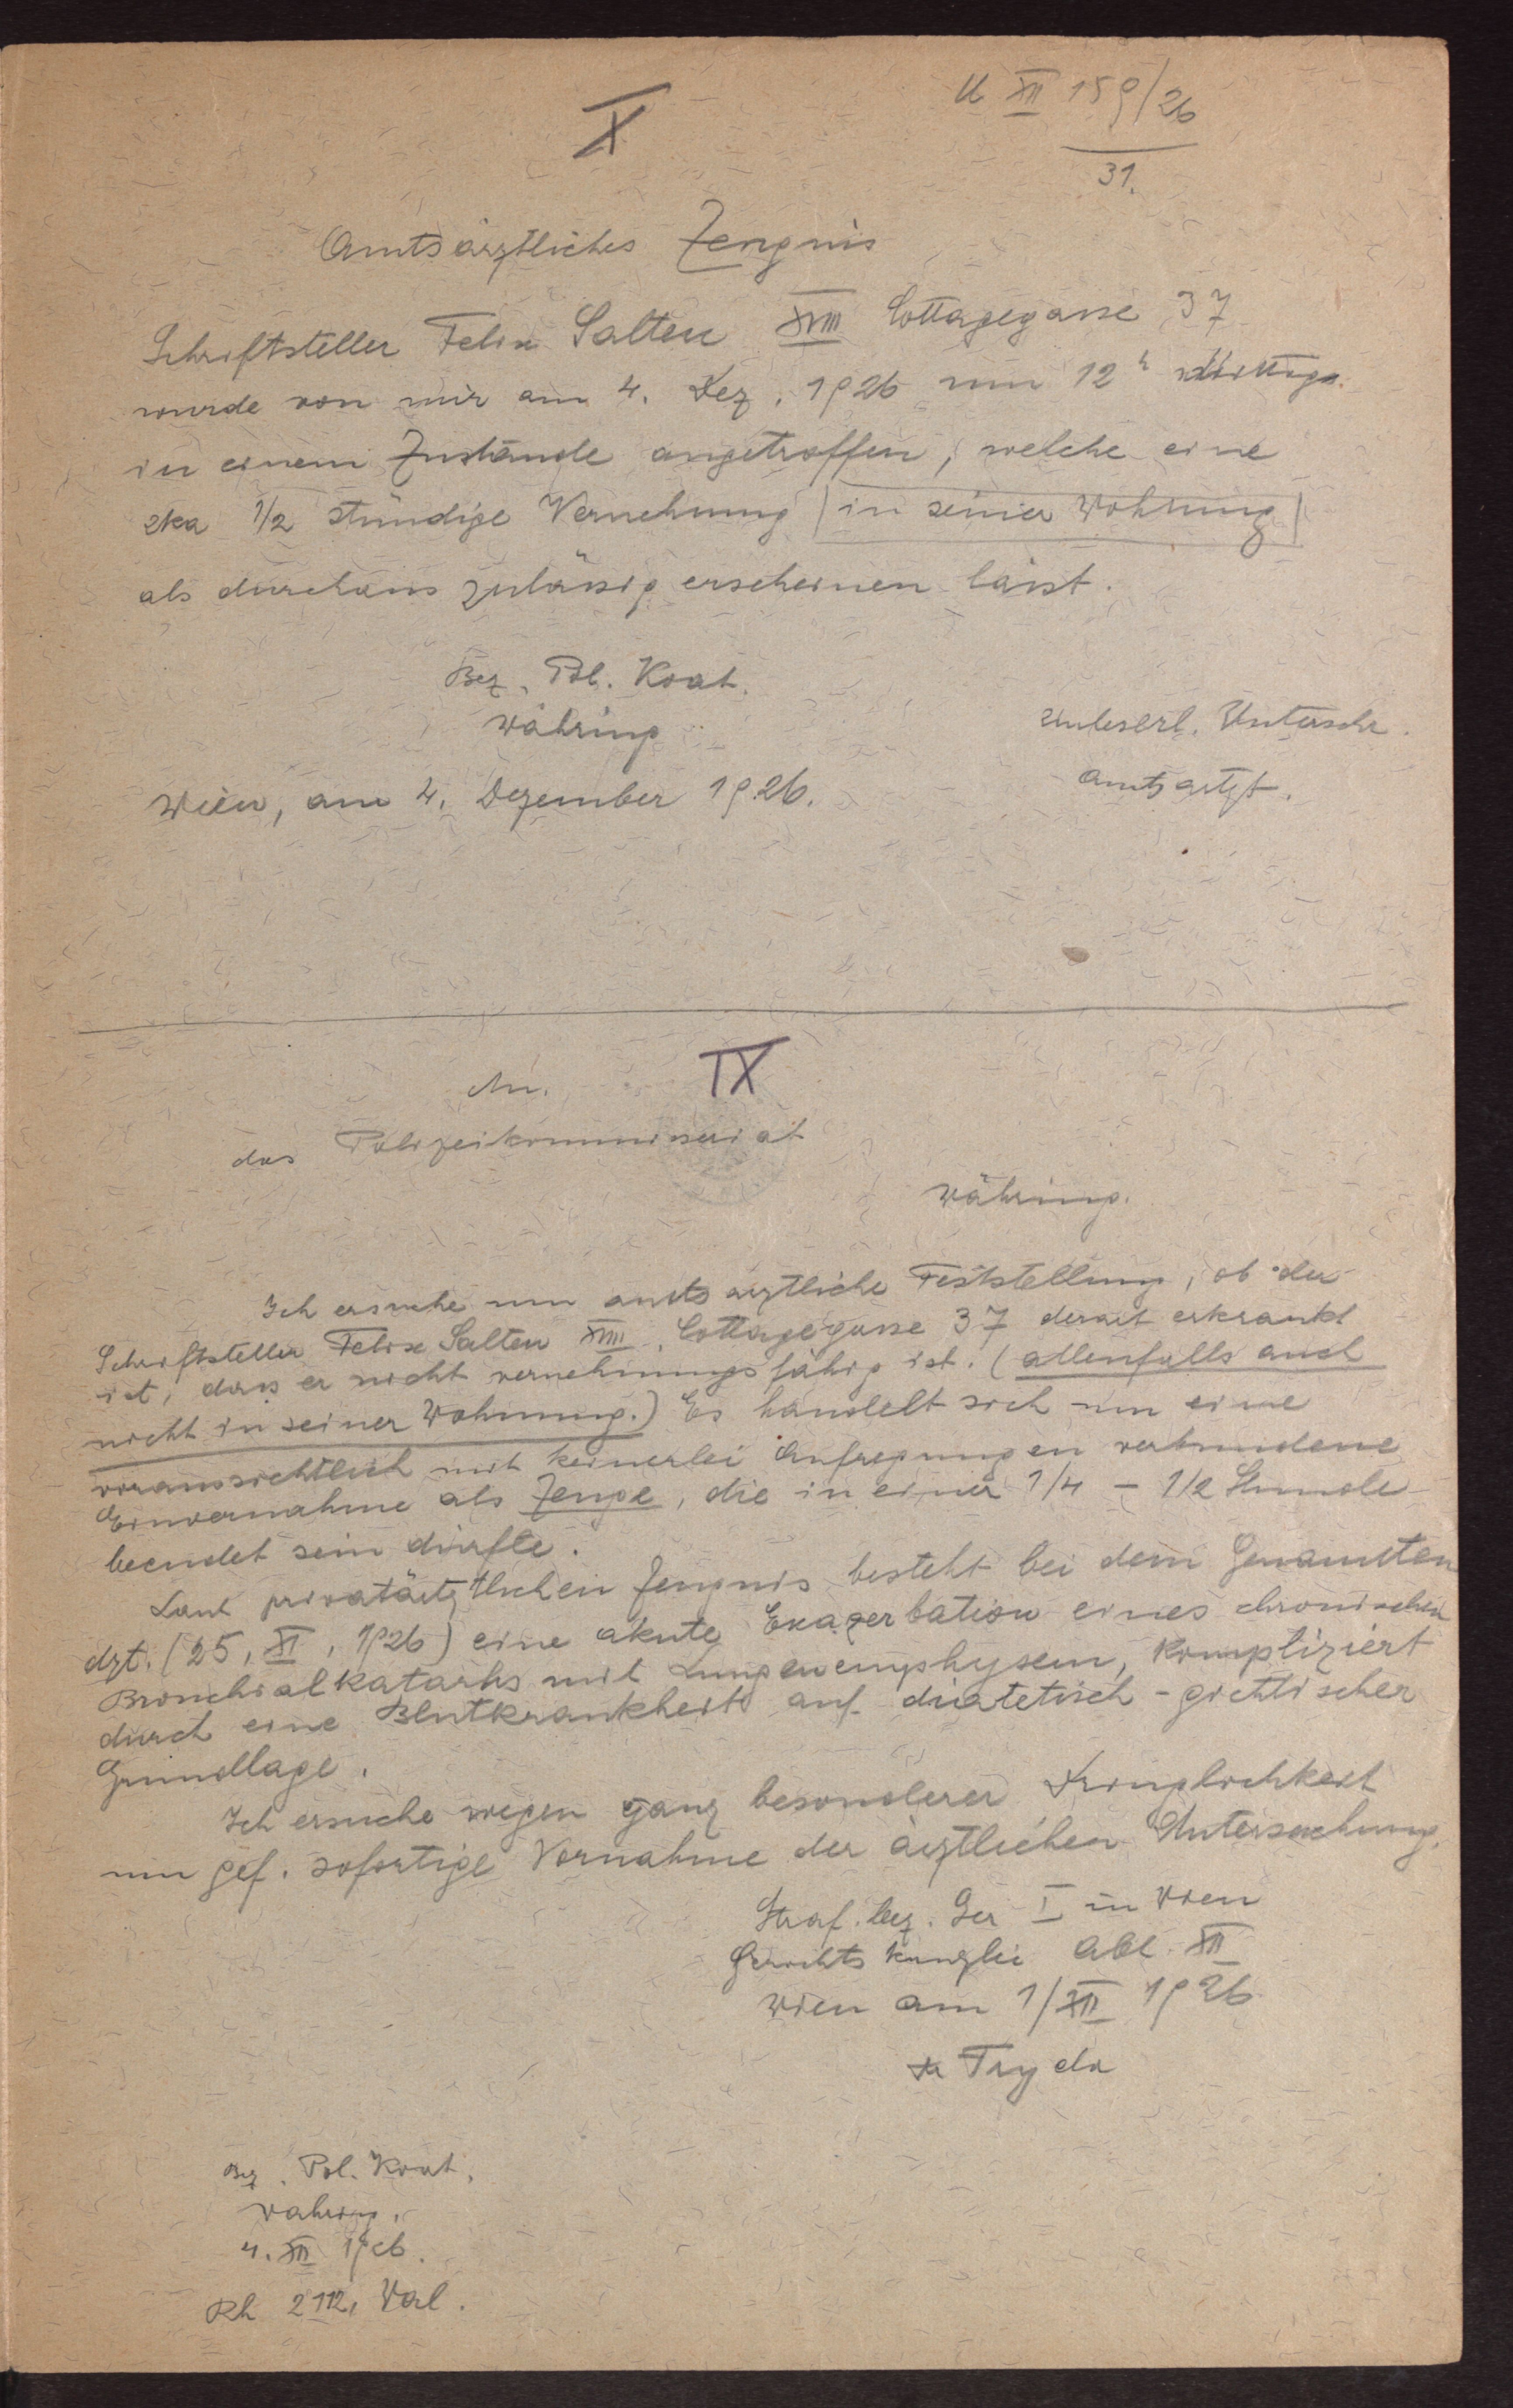 X
U XII 159/26
31.
Amtsärztliches Zeugnis
Schriftsteller Felix Salten XVIII Cottagegasse 37
wurde von mir am 4. Dez. 1926 um 12 h
in einem Zustande angetroffen, welche eine
zka 1/2 stündige Vernehmung (in seiner Wohnung)
als durchaus zulässig erscheinen lässt.
Bez. Pol. Koat.
Währing
Unleserl. Unterschr.
Amtsarzt.
Wien, am 4. Dezember 1926.
An. IX
das Polizeikommissariat
Währing.
Ich ersuche um amtsärztliche Feststellung, ob der
Schriftsteller Felix Salten XVIII, Cottagegasse 37 derart erkrankt
ist, dass er nicht vernehmungsfähig ist. (allenfalls auch
nicht in seiner Wohnung.) Es handelt sich um eine
voraussichtlich mit keinerlei Aufregungen verbundene
Einvernahme als Zeuge, die in einer 1/4 - 1/2 Stunde
beendet sein dürfte.
Laut privatärztlichen Zeugnis besteht bei dem Genannten
dzt. (25. XI. 1926) eine akute Exazerbation eines chronischen
Bronchialkatarhs mit Lungenemphysem, kompliziert
durch eine Blutkrankheit auf diatetisch-gichtischer
Grundlage.
Ich ersuche wegen ganz besonderer Dringlichkeit
um gef. sofortige Vornahme der ärztlichen Untersuchung.
Straf. bez. Ger I in Wien
Gerichtskanzlei Abt. XII
Wien am 1/XII 1926
Dr Tryda
Bez. Pol. Koat.
Währing.
4. XII 1926.
Rh 2112,